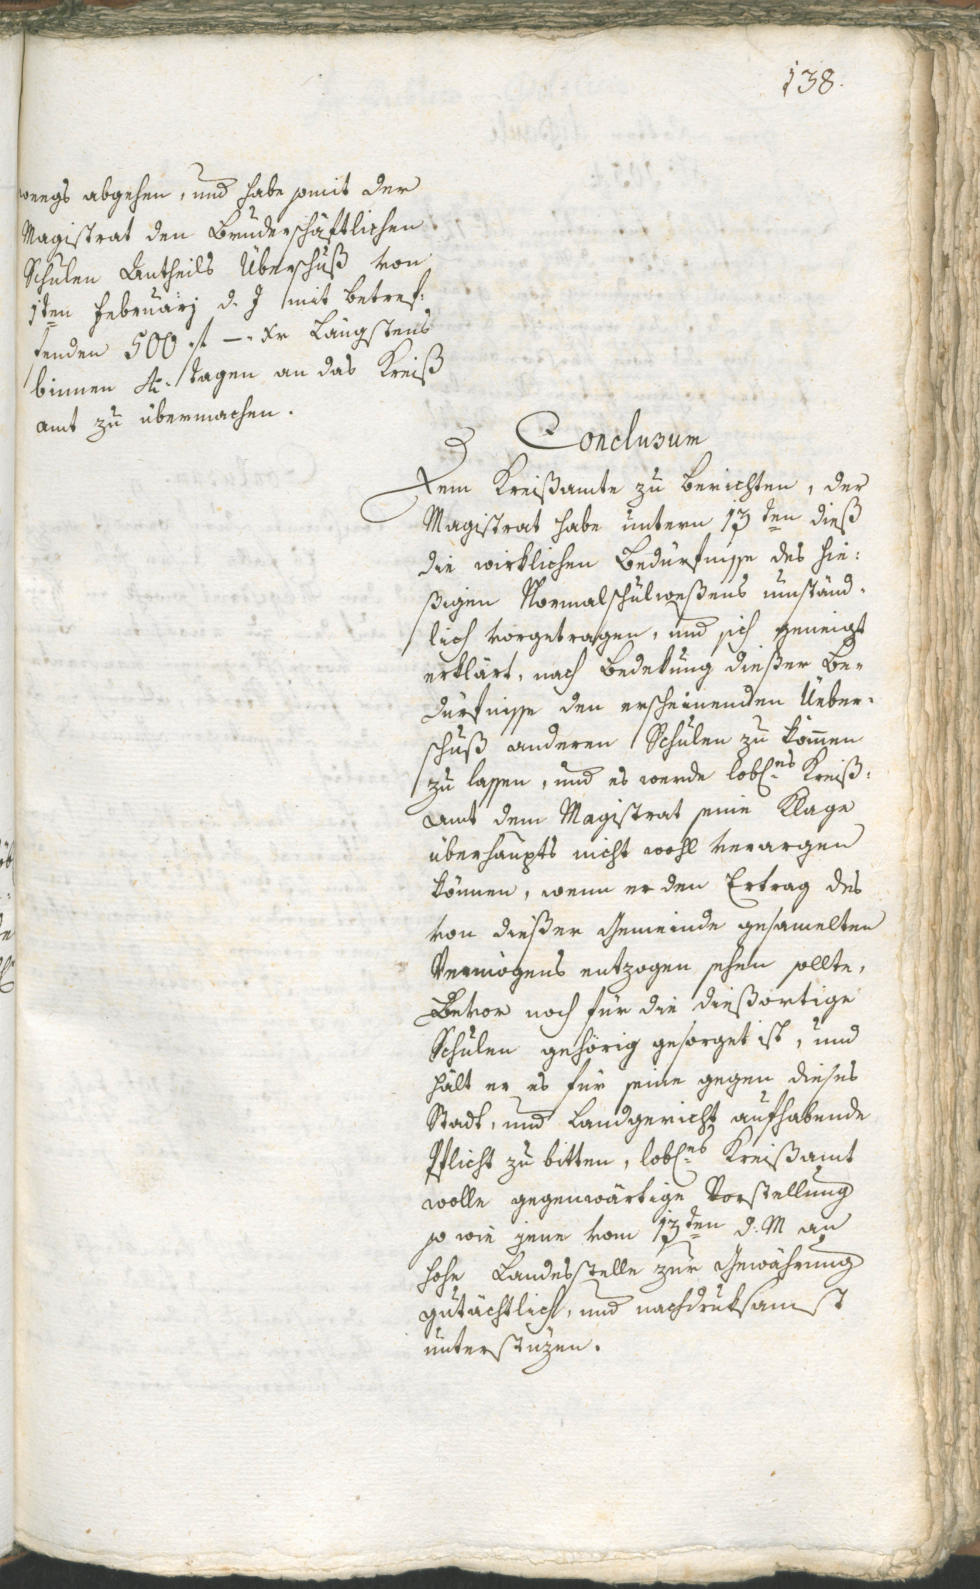 138.
weegs abgehen, und habe somit der
Magistrat den Bruderschäftlichen
Schulen Antheils Überschuß von
1ten Februarj d. J mit betref-
fenden 500 f — Xr Längstens
binnen 4. tagen an das Kreiß
amt zu übermachen.
Conclusum
Dem Kreißamte zu berichten, der
Magistrat habe untern 13ten dieß
die wirklichen Bedürfnisse des hie-
ßigen Normalschulweßens umständ-
lich vorgetragen, und sich geneigt
erklärt, nach Bedekung dießer Be-
dürfnisse den erscheinenden Ueber-
schuß anderen Schulen zu kommen
zu lassen, und es werde lobles Kreiß-
amt dem Magistrat seine Klage
überhaupts nicht wohl verargen
können, wenn er den Ertrag des
von dießer Gemeinde gesamelten
Vermögens entzogen sehen sollte,
Bevor noch für die dießortige
Schulen gehörig gesorget ist, und
hält er es für seine gegen dieses
Stadt, und Landgericht aufhabende
Pflicht zu bitten, lobles Kreißamt
wolle gegenwärtige Vorstellung
so wie jene vom 13ten d. M an
hohe Landesstelle zur Gewährung
gutächtlich, und nachdruksamst
unterstüzen.